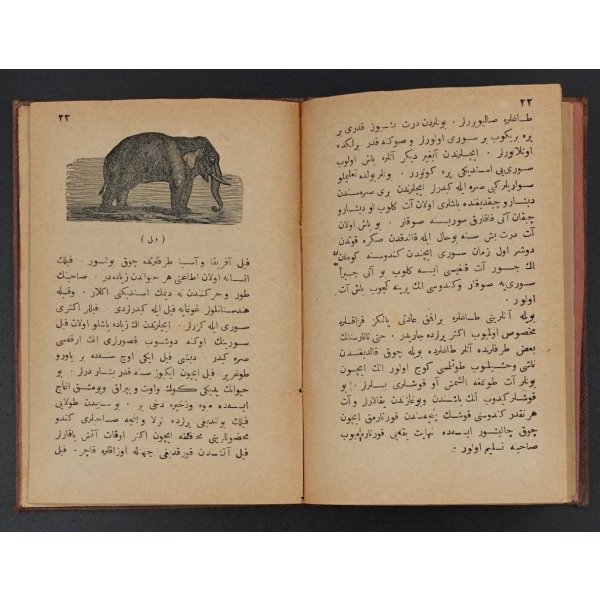 ٢٢
طاغلره صالیویررلر . بونلردن درت بشیوز قدری بر
یره بریکوب بر سوری اولورلر و صوکنه قدر برلکده
اوتلانورلر . ایچلرندن آیغیر دیکر آتلره باش اولوب
سوری یی استدیکی یره کوتورر . ونلر یولده تعلیملو
سواریلر کبی صره ایله کیدرلر ایچلرندن بری صره سندن
دیشارو چیقدیغنده باشلری اولان آت کلوب او دیشارو
چیقان آتی قاقارق سوریسنه صوقار . بو باش اولان
آت درت بش سنه بو حال ایله قالدقدن صکره قوتدن
دوشر اول زمان سوری ایچندن کندوسنه
الك جسور آت قنغیسی ایسه کلوب بو آتی جبراً
سوری یه صوقار وکندوسی انك یرینه کچوب باش آت
اولور .
بویله آتلرینی طاغلره براقق عادتی یالکز قزاقلره
مخصوص اولمیوب اکثر یرلرده جاریدر . حتی تاتارستانك
بعض طرفلرنده آتلر طاغلرده بویله چوق قالدیغندن
ناشی وحشیلنوب طوتلمسی کوج اولور انك ایچون
بونلر آت طوتمغه الشمش آو قوشلری بسلرلر . بو
قوشلر کیدوب آتك باشندن وبوغازندن یقالارلر و آت
هر نقدر کندوسنی قوشك پنجه سندن قورتارمق ایچون
چوق چالیشور ایسه ده نهایت یقه یی قورتاره میوب
صاحبنه تسلیم اولور .
٢٣
( فیل )
فیل آفریقا و آسیا طرفلرنده چوق بولنور . فیلك
انسانه اولان اطاعتی هر حیواندن زیاده در . صاحبنك
طور و حرکتندن نه دیمك استدیکنی اکلار . وقتیله
هندستانلولر غوغایه فیل ایله کیدرلردی . فیللر اکثری
سوری ایله کزرلر . ایچلرندن الك زیاده یاشلو اولان فیل
سورینك اوکنه دوشوب قصورلری انك ارقه سی
صره کیدر . دیشی فیل ایکی اوچ سنه ده بر یاورو
طوغریر . فیل ایچون ایکیوز سنه قدر یشار دیرلر . بو
حیوانك یدیکی کوك واوت ویپراق ویومشق اغاج
ایسه ده میوه وذخیره دخی یر . بو سببدن طولایی
فیلك بولندیغی یرلرده ترلا وباغچه صاحبلری کندو
محصولارینی محافظه ایچون اکثر اوقات آتش یاقارلر
فیل آتشدن قورقدیغی جهتله اوزاقلره قاچر . فیل